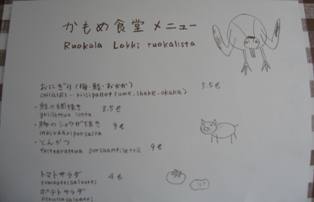 かもめ食堂 メニュー
Ruokala Lokki ruokalista
おにぎり（梅・鮭・おかか） 3.5€
onigiri - riisipallot (ume, shake, okaka)
・鮭の網焼き 8.5€
grillattua lohta
・豚のショウガ焼き 9€
・とんカツ 9€
トマトサラダ 4€
tomaattisalaatti
ポテトサラダ